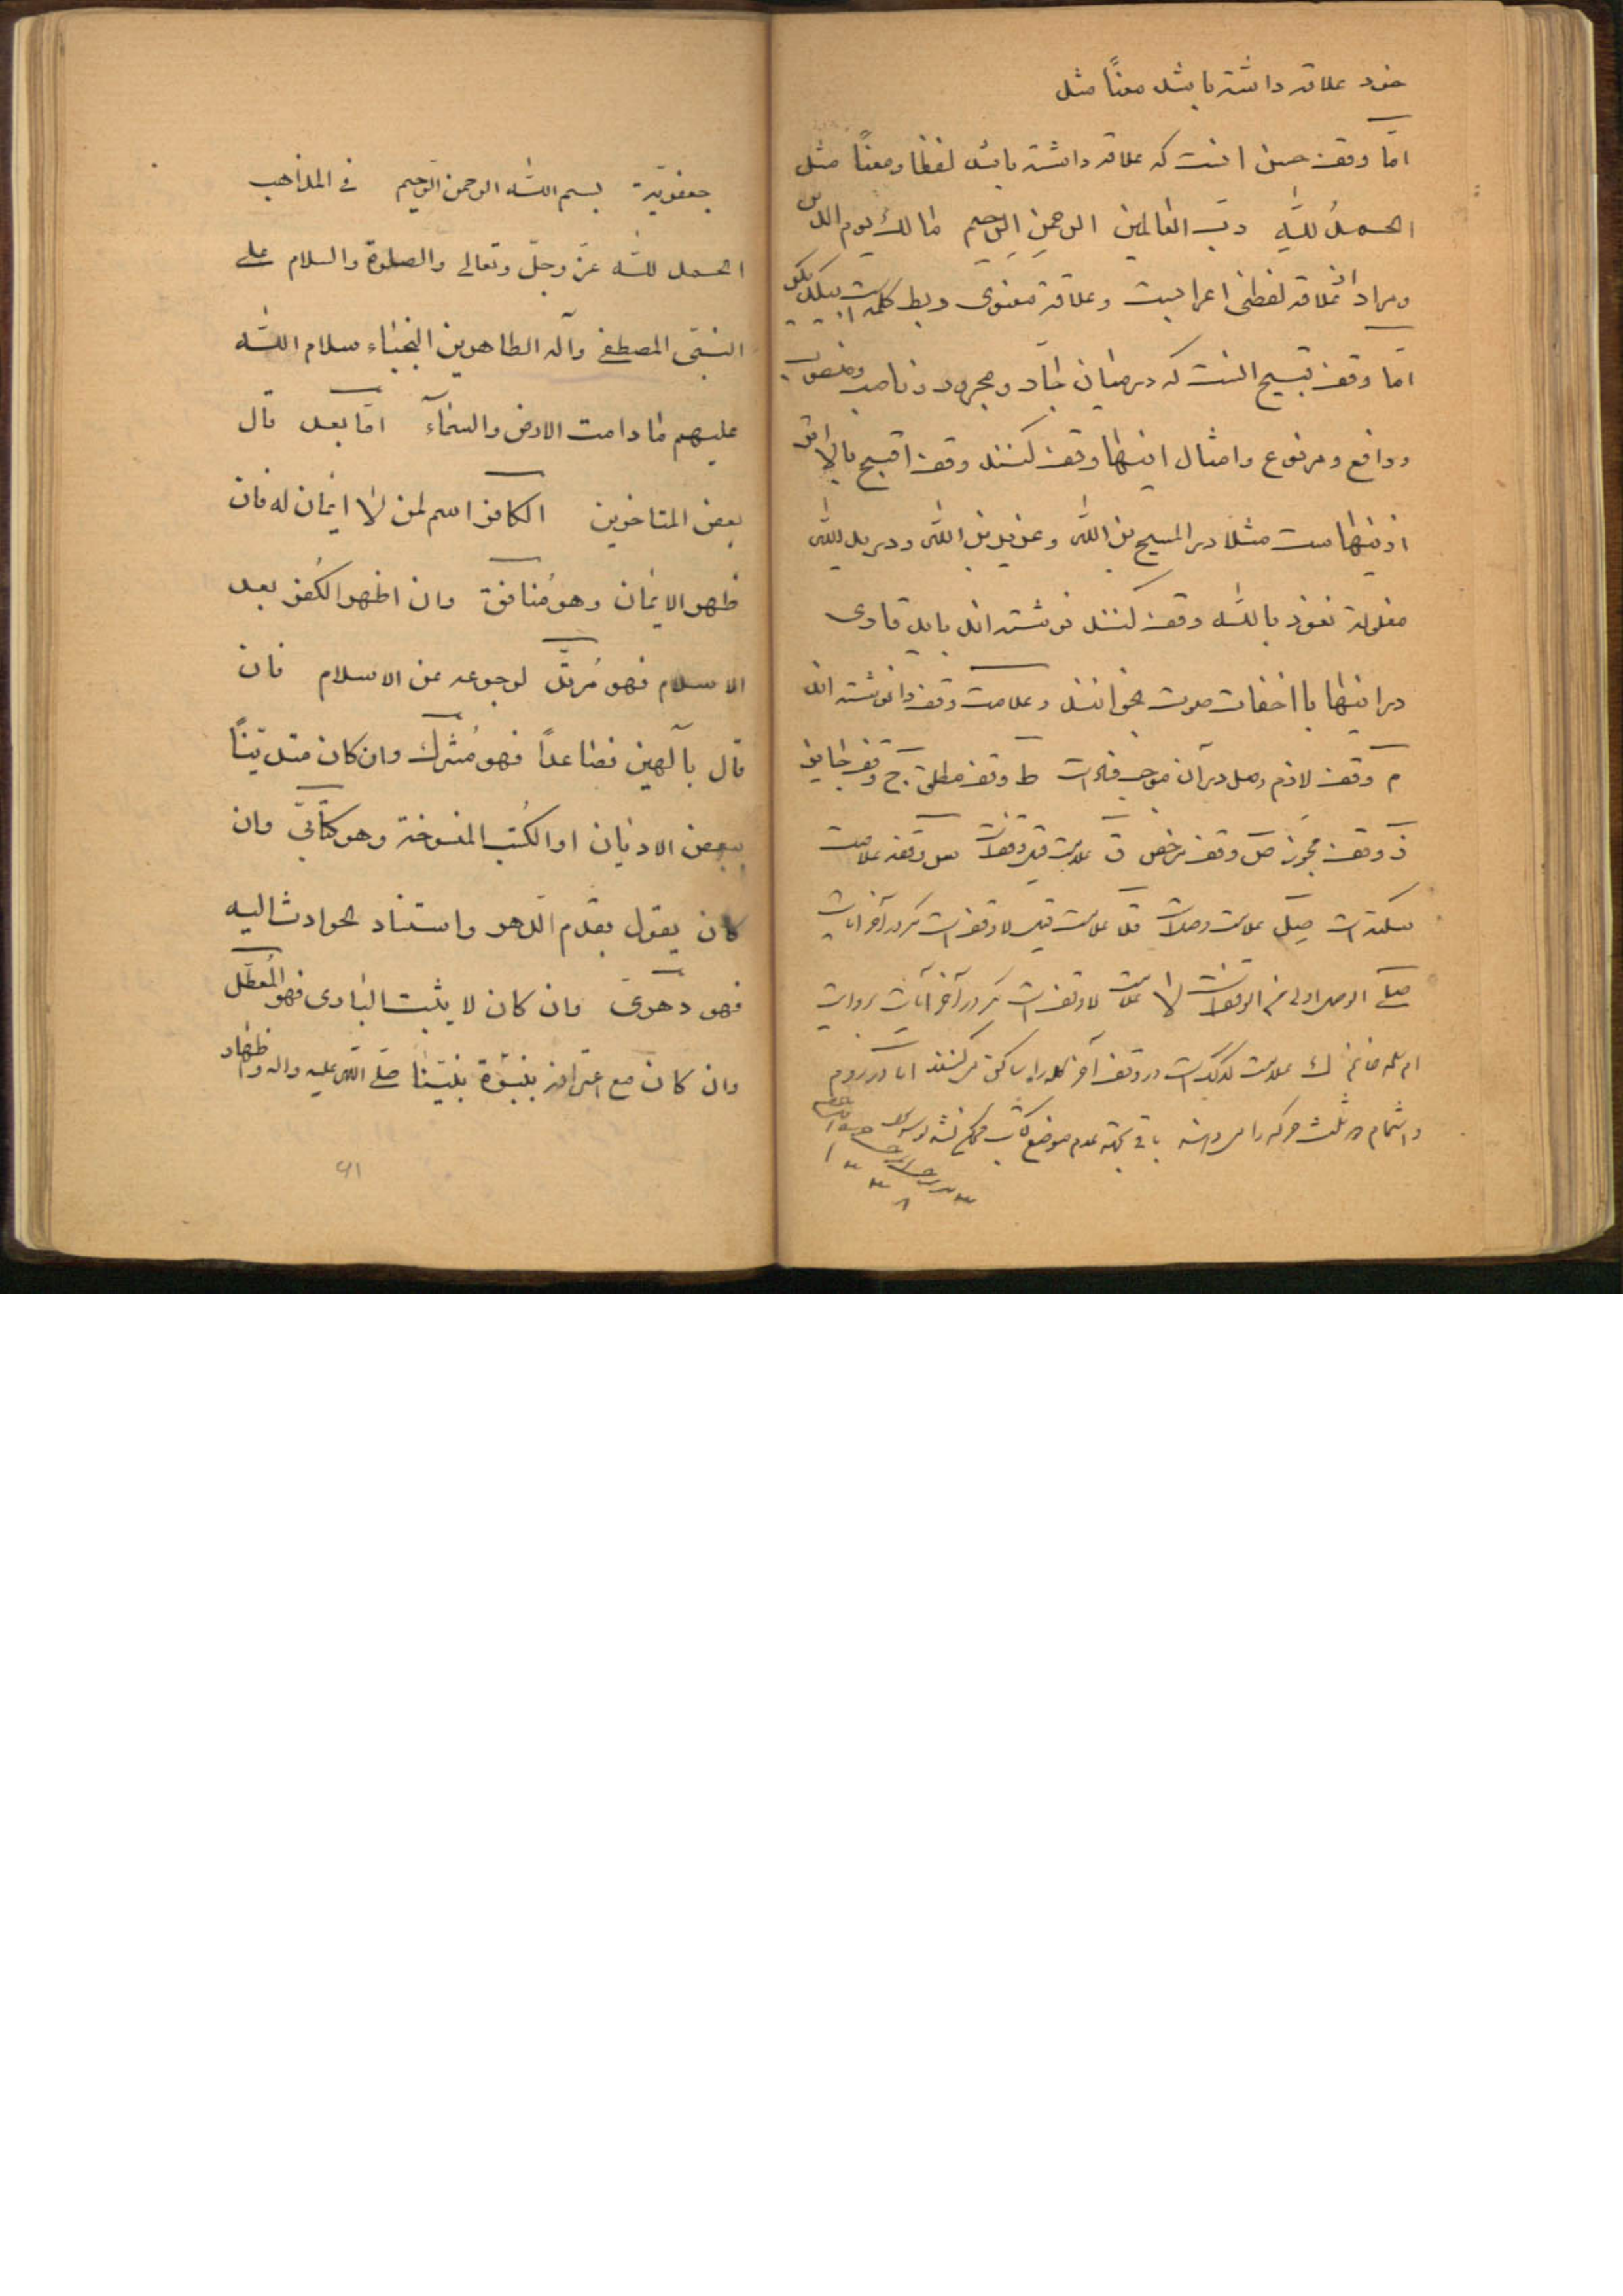 خود علاقه داشته باشد معناً مثل
امّا وقف حسن انست که علاقه داشته باشد لفظا و معناً مثل
الحمدُ للهِ ربّ العالمین الرحمنِ الرحیمِ مالك یوم الدین
و مراد از علاقه لفظی اعرابیست و علاقهٔ معنوی ربط کلمه است بیکدیکر
امّا وقف قبیح انست که در میان جارّ و مجرور و ناصب و منصوب
و رافع و مرفوع و امثال اینها وقف کنند وقف اقبح بالاتر
از اینهاست مثلا در المسیح بن الله و عزیر بن الله و در ید الله
مغلولة نعوذ بالله وقف کنند نوشته اند باید قاری
در اینها با اخفات صوت بخوانند و علامت وقف را نوشته اند
م وقف لازم وصل در آن موجب فساد است ط وقف مطلق ج وقف جایز
ز وقف مجوز ص وقف مرخص ق علامت قیل وقف است وقفه علامت
سکته است صل علامت وصل است قلا علامت قیل لا وقف است که در آخر آیات
صلی الوصل اولی من الوقف است لا علامت لا وقف است که در آخر آیات بروایت
ک علامت کذلک است در وقف آخر کلمه را ساکن میکنند اما در روم
و اشمام ثلث حرکه را باقی بجهة عدم موضع کتاب
۱۳۳۸
جعفریّة بسم الله الرحمن الرحیم فی المذاهب
الحمد لله عزّ وجلّ وتعالی والصلوة والسلام علی
النبیّ المصطفی وآله الطاهرین النجباء سلام الله
علیهم مادامت الارض والسمآء امّا بعد قال
بعض المتاخرین الکافر اسم لمن لا ایمان له فان
ظهر الایمان وهو مُنافق وان اظهر الکُفر بعد
الاسلام فهو مُرتدّ لرجوعه عن الاسلام فان
قال بآلهین فصاعداً فهو مُشرك وان کان متدیّناً
ببعض الادیان او الکُتب المنسوخة وهو کتابیّ وان
کان یقول بقدم الدهر واستناد الحوادث الیه
فهو دهریّ وان کان لا یثبت الباری فهو المُعطّل
وان کان مع اعترافه بنبوّة نبیّنا صلی الله علیه واله واظهار
۶۱